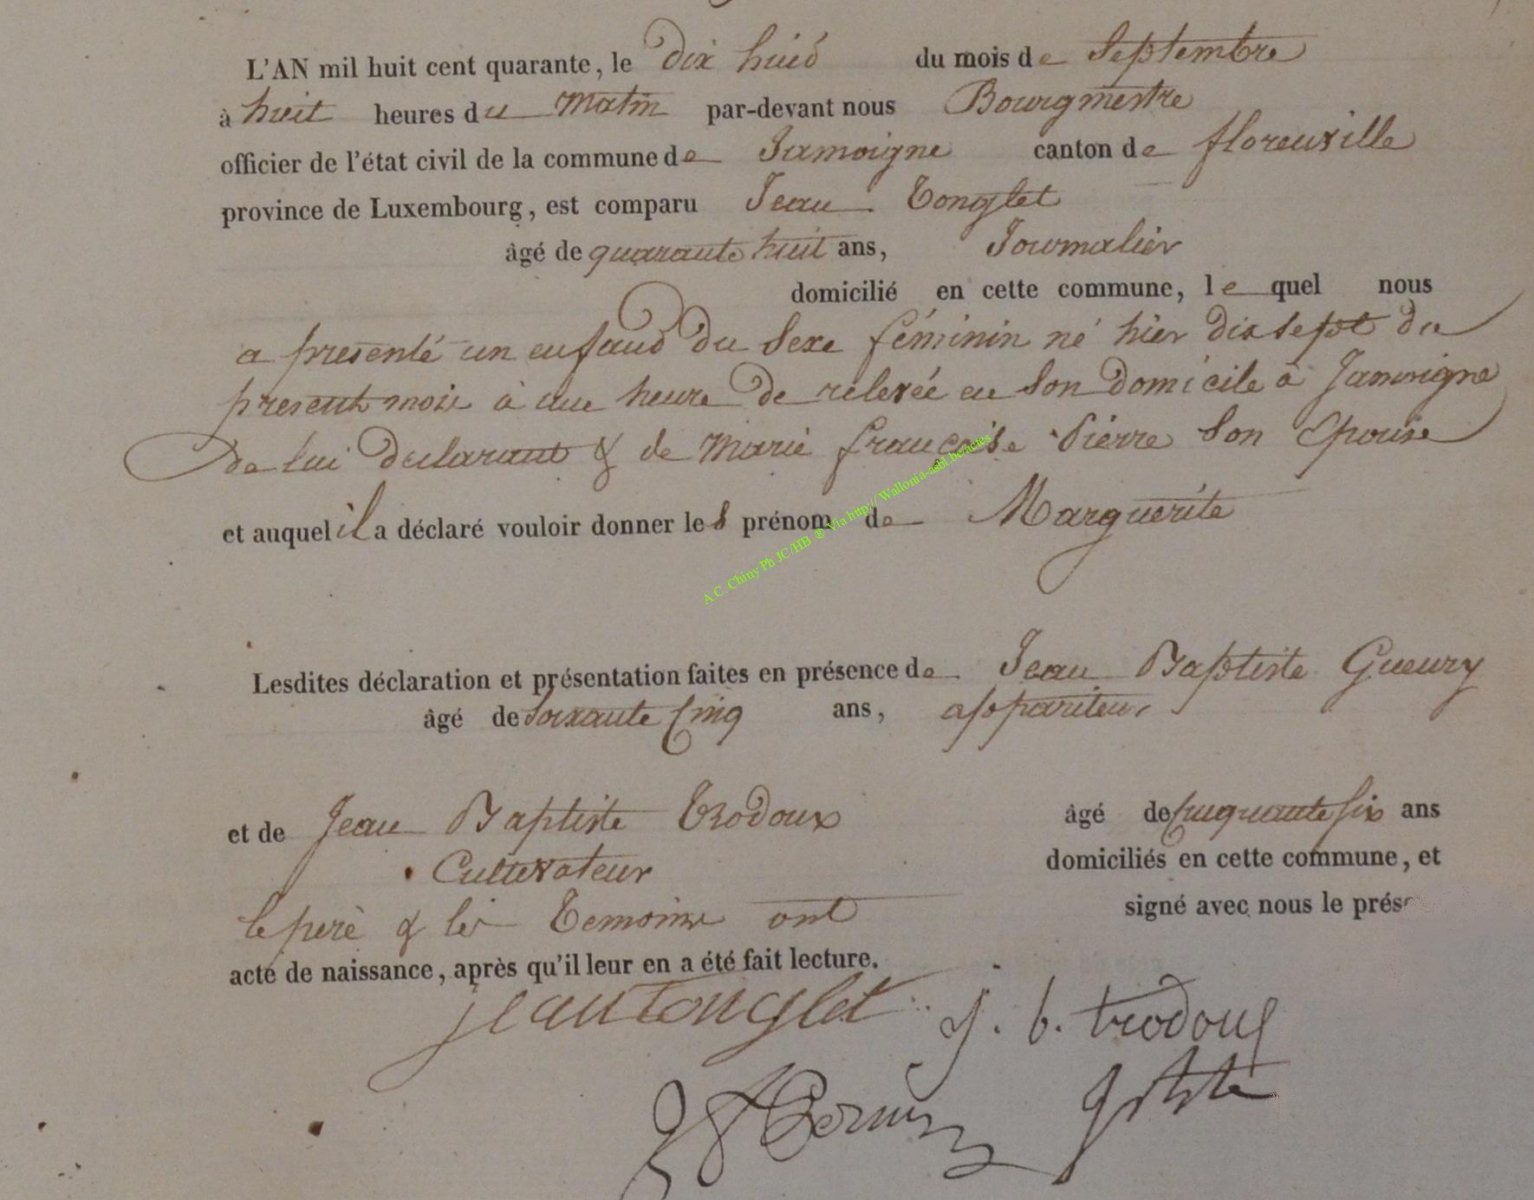 L'AN mil huit cent quarante, le dix huit du mois de Septembre
à huit heures du Matin par-devant nous Bourgmestre
officier de l'état civil de la commune de Jamoigne canton de florenville
province de Luxembourg, est comparu Jean Tonglet
âgé de quarante huit ans, Journalier
domicilié en cette commune, le quel nous
a presenté un enfant du Sexe féminin né hier dix sept du
present mois à une heure de relevée en Son domicile à Jamoigne
de lui declarant & de Marie françoise Pierre Son Epouse
et auquel il a déclaré vouloir donner les prénom de Marguerite
A.C. Chiny Ph JC/HB ® Via http:// Wallonia-asbl.be/actes
Lesdites déclaration et présentation faites en présence de Jean Baptiste Gueury
âgé de Soixante Cinq ans, appariteur
et de Jean Baptiste Trodoux âgé de Cinquante six ans
Cultivateur domiciliés en cette commune, et
le pere & les Temoins ont signé avec nous le prése
acte de naissance, après qu'il leur en a été fait lecture.
jean Tonglet j. b. trodoux